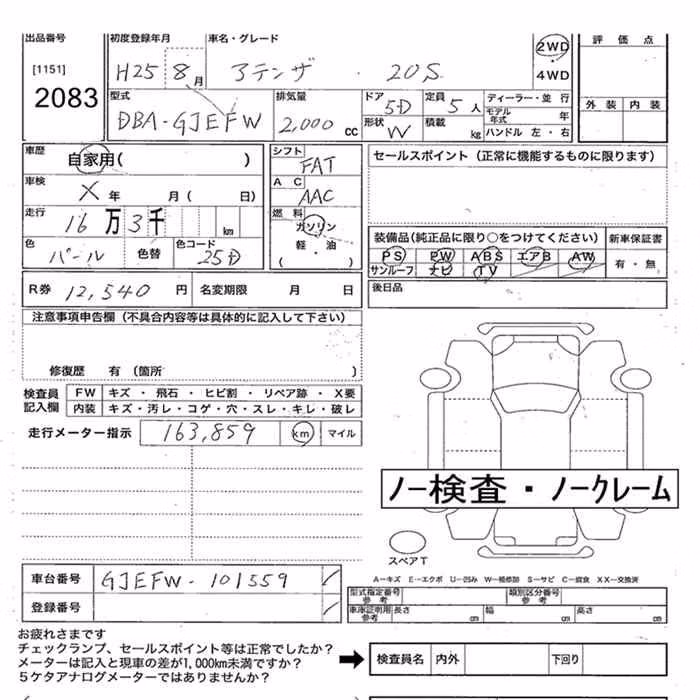 出品番号
[1151]
2083
初度登録年月 車名・グレード
H25 8月 アテンザ 20S
2WD
・
4WD
評価点
外装 内装
型式 排気量 ドア 定員 ディーラー・並行
DBA-GJEFW 2,000cc 5D 5人
形状 W 積載 kg モデル年式 年
ハンドル 左・右
車歴
自家用( )
車検
X年 月( 日)
走行
16万3千 km
色 パール 色替 色コード 25D
シフト
FAT
A C
AAC
燃料
ガソリン
軽・油
( )
セールスポイント(正常に機能するものに限ります)
装備品(純正品に限り○をつけてください) 新車保証書
PS PW ABS エアB AW 有・無
サンルーフ ナビ TV
後日品
R券 12,540 円 名変期限 月 日
注意事項申告欄(不具合内容等は具体的に記入して下さい)
修復歴 有(箇所 )
検査員記入欄 FW キズ・飛石・ヒビ割・リペア跡・X要
内装 キズ・汚レ・コゲ・穴・スレ・キレ・破レ
走行メーター指示 163,859 km マイル
ノー検査・ノークレーム
スペアT
A-キズ E-エクボ U-凹み W-補修跡 S-サビ C-腐食 XX-交換済
車台番号 GJEFW-101559
登録番号
型式指定番号 参考 類別区分番号 参考
車庫証明用 参考 長さ cm 幅 cm 高さ cm
お疲れさまです
チェックランプ、セールスポイント等は正常でしたか?
メーターは記入と現車の差が1,000km未満ですか?
5ケタアナログメーターではありませんか?
検査員名 内外 下回り